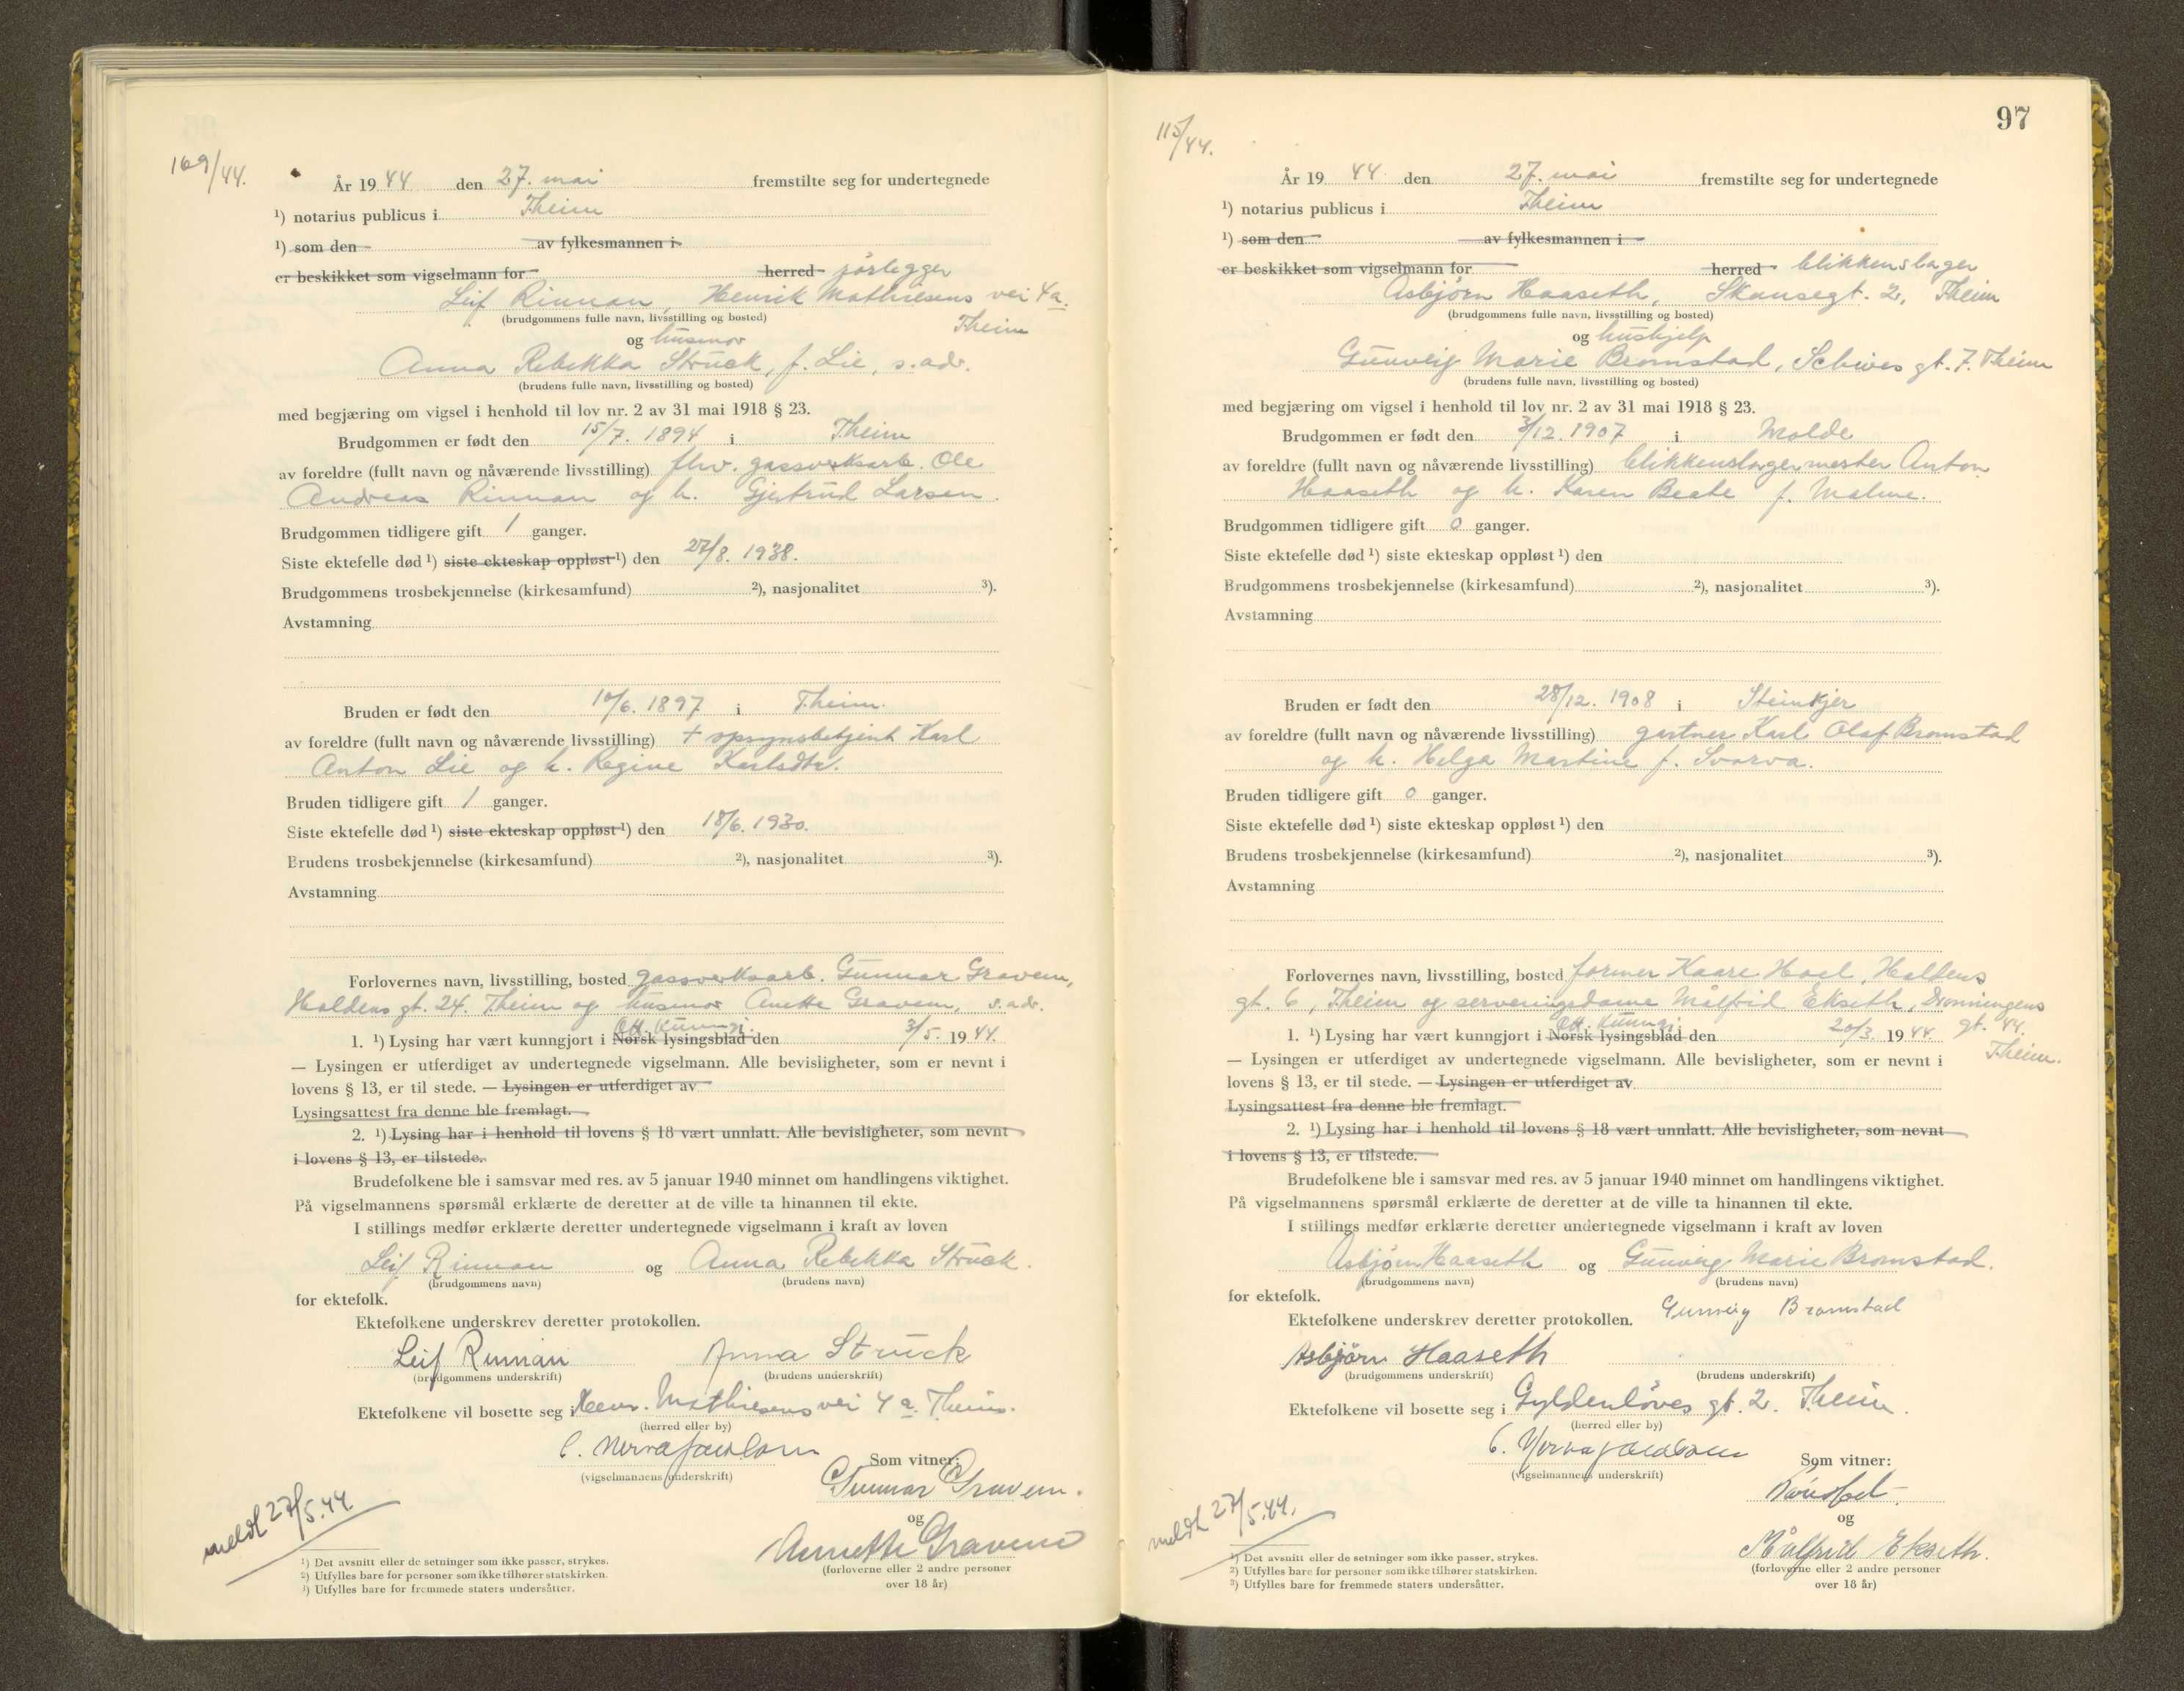 169/44.
År 1944 den 27. mai fremstilte seg for undertegnede
¹) notarius publicus i Theim
¹) som den av fylkesmannen i
er beskikket som vigselmann for herred rörlegger
Leif Rinnan, Henrik Mathiesens vei 4a.
(brudgommens fulle navn, livsstilling og bosted) Theim
og husmor
Anna Rebekka Struck, f. Lie, s. adr.
(brudens fulle navn, livsstilling og bosted)
med begjæring om vigsel i henhold til lov nr. 2 av 31 mai 1918 § 23.
Brudgommen er født den 15/7. 1894 i Theim
av foreldre (fullt navn og nåværende livsstilling) fhv. gassverksarb. Ole
Andreas Rinnan og h. Gjertrud Larsen.
Brudgommen tidligere gift 1 ganger.
Siste ektefelle død ¹) siste ekteskap oppløst ¹) den 27/8. 1938.
Brudgommens trosbekjennelse (kirkesamfund) ²), nasjonalitet ³).
Avstamning
Bruden er født den 10/6. 1897 i Theim.
av foreldre (fullt navn og nåværende livsstilling) + opsynsbetjent Karl
Anton Lie og h. Regine Karlsdtr.
Bruden tidligere gift 1 ganger.
Siste ektefelle død ¹) siste ekteskap oppløst ¹) den 18/6. 1930.
Brudens trosbekjennelse (kirkesamfund) ²), nasjonalitet ³).
Avstamning
Forlovernes navn, livsstilling, bosted gassverksarb. Gunnar Gravem,
Haldens gt. 24. Theim og husmor Anette Gravem, s. adr.
Off. kunngj.
1. ¹) Lysing har vært kunngjort i Norsk lysingsblad den 3/5. 1944.
— Lysingen er utferdiget av undertegnede vigselmann. Alle bevisligheter, som er nevnt i
lovens § 13, er til stede. — Lysingen er utferdiget av
Lysingsattest fra denne ble fremlagt.
2. ¹) Lysing har i henhold til lovens § 18 vært unnlatt. Alle bevisligheter, som nevnt
i lovens § 13, er tilstede.
Brudefolkene ble i samsvar med res. av 5 januar 1940 minnet om handlingens viktighet.
På vigselmannens spørsmål erklærte de deretter at de ville ta hinannen til ekte.
I stillings medfør erklærte deretter undertegnede vigselmann i kraft av loven
Leif Rinnan og Anna Rebekka Struck.
(brudgommens navn) (brudens navn)
for ektefolk.
Ektefolkene underskrev deretter protokollen.
Leif Rinnan Anna Struck
(brudgommens underskrift) (brudens underskrift)
Ektefolkene vil bosette seg i Henr. Mathiesens vei 4a. Theim.
(herred eller by)
(vigselmannens underskrift) Som vitner:
Gunnar Gravem.
og
meldt 27/5.44.
Annette Gravem
(forloverne eller 2 andre personer
over 18 år)
¹) Det avsnitt eller de setninger som ikke passer, strykes.
²) Utfylles bare for personer som ikke tilhører statskirken.
³) Utfylles bare for fremmede staters undersåtter.
97
115/44.
År 1944 den 27. mai fremstilte seg for undertegnede
¹) notarius publicus i Theim
¹) som den av fylkesmannen i
er beskikket som vigselmann for herred blikkenslager
Asbjörn Haaseth, Skansegt. 2, Theim
(brudgommens fulle navn, livsstilling og bosted)
og hushjelp
Gunveig Marie Bromstad, Schives gt. 7. Theim
(brudens fulle navn, livsstilling og bosted)
med begjæring om vigsel i henhold til lov nr. 2 av 31 mai 1918 § 23.
Brudgommen er født den 3/12. 1907 i Molde
av foreldre (fullt navn og nåværende livsstilling) blikkenslagermester Anton
Haaseth og h. Karen Beate f. Malme.
Brudgommen tidligere gift 0 ganger.
Siste ektefelle død ¹) siste ekteskap oppløst ¹) den
Brudgommens trosbekjennelse (kirkesamfund) ²), nasjonalitet ³).
Avstamning
Bruden er født den 28/12. 1908 i Steinkjer
av foreldre (fullt navn og nåværende livsstilling) gartner Karl Olaf Bromstad
og h. Helga Martine f. Svarva.
Bruden tidligere gift 0 ganger.
Siste ektefelle død ¹) siste ekteskap oppløst ¹) den
Brudens trosbekjennelse (kirkesamfund) ²), nasjonalitet ³).
Avstamning
Forlovernes navn, livsstilling, bosted former Kaare Hoel, Haldens
gt. 6, Theim og serveringsdame Målfrid Ekseth, Dronningens
gt. 44.
Theim.
Off. kunngj.
1. ¹) Lysing har vært kunngjort i Norsk lysingsblad den 20/3. 1944.
— Lysingen er utferdiget av undertegnede vigselmann. Alle bevisligheter, som er nevnt i
lovens § 13, er til stede. — Lysingen er utferdiget av
Lysingsattest fra denne ble fremlagt.
2. ¹) Lysing har i henhold til lovens § 18 vært unnlatt. Alle bevisligheter, som nevnt
i lovens § 13, er tilstede.
Brudefolkene ble i samsvar med res. av 5 januar 1940 minnet om handlingens viktighet.
På vigselmannens spørsmål erklærte de deretter at de ville ta hinannen til ekte.
I stillings medfør erklærte deretter undertegnede vigselmann i kraft av loven
Asbjörn Haaseth og Gunveig Marie Bromstad.
(brudgommens navn) (brudens navn)
for ektefolk.
Ektefolkene underskrev deretter protokollen. Gunveig Bromstad
Asbjörn Haaseth
(brudgommens underskrift) (brudens underskrift)
Ektefolkene vil bosette seg i Gyldenlöves gt. 2. Theim.
(herred eller by)
(vigselmannens underskrift) Som vitner:
og
meldt 27/5.44.
Målfrid Ekseth.
(forloverne eller 2 andre personer
over 18 år)
¹) Det avsnitt eller de setninger som ikke passer, strykes.
²) Utfylles bare for personer som ikke tilhører statskirken.
³) Utfylles bare for fremmede staters undersåtter.